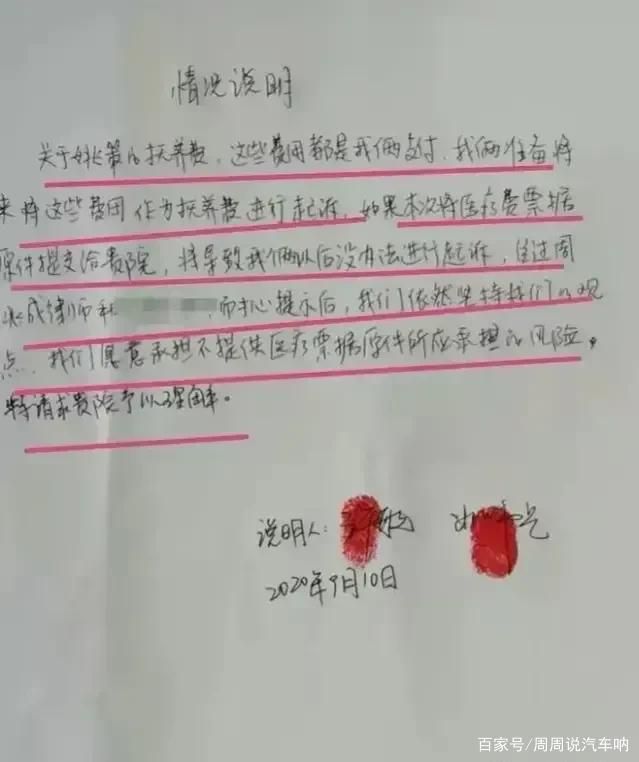 情况说明
关于姚策的抚养费，这些费用都是我俩支付，我俩准备将
来将这些费用作为抚养费进行起诉，如果本次将医疗费票据
原件提交给贵院，将导致我俩以后没办法进行起诉，经过周
兆成律师和 而担心提示后，我们依然坚持我们的观
点，我们愿意承担不提供医疗票据原件所应承担的风险。
特请求贵院予以理解。
说明人：
2020年9月10日
百家号/周周说汽车呐